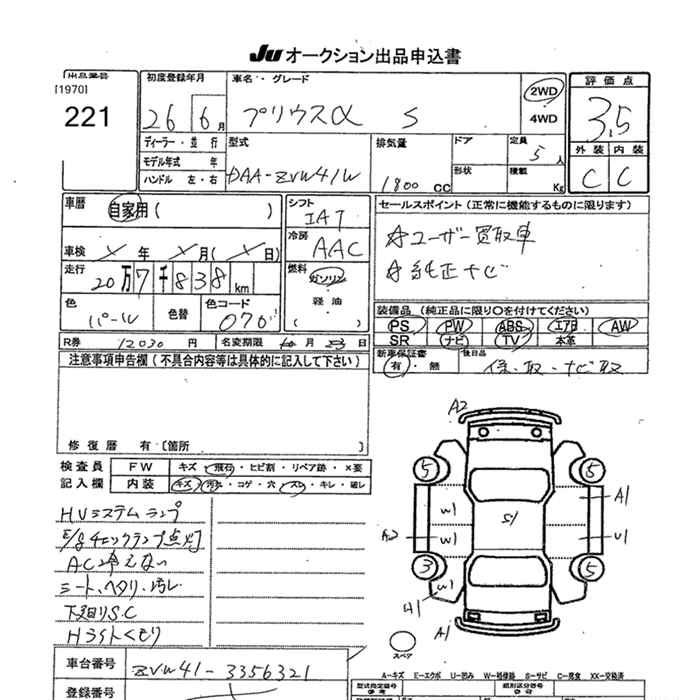 JU オークション出品申込書
出品番号
[1970]
221
初度登録年月
26 6 月
車名・グレード
プリウスα S
2WD
4WD
評価点
3.5
外装 内装
C C
ディーラー・並行
モデル年式 年
ハンドル 左・右
型式
DAA-ZVW41W
排気量
1800 cc
ドア
形状
定員
5 人
積載
Kg
車歴
自家用 ( )
車検 × 年 × 月 ( × 日)
走行
20 万 7 千 8 3 8 km
色
パール
色替
色コード
070
シフト
IAT
冷房
AAC
燃料
ガソリン
軽油
( )
セールスポイント (正常に機能するものに限ります)
☆ユーザー買取車
☆純正ナビ
装備品 (純正品に限り○を付けてください)
PS PW ABS エアB AW
SR ナビ TV 本革
新車保証書
有・無
後日品
保・取・ナビ取
R券 12030 円 名変期限 月 日
注意事項申告欄 (不具合内容等は具体的に記入して下さい)
修復歴 有 [箇所 ]
検査員 FW キズ・飛石・ヒビ割・リペア跡・×要
記入欄 内装 キズ・汚れ・コゲ・穴・スレ・キレ・破レ
HVシステムランプ
E/gチェックランプ点灯
AC冷えない
シート、ヘタリ、汚レ
下廻りS.C
Hライトくもり
車台番号
ZVW41-3356321
登録番号
A2
5 5
W1 A1
S1
A2 W1 U1
3 5
W1
A1
スペア
A-キズ E-エクボ U-凹み W-補修跡 S-サビ C-腐食 XX-交換済
型式指定番号
類別区分番号